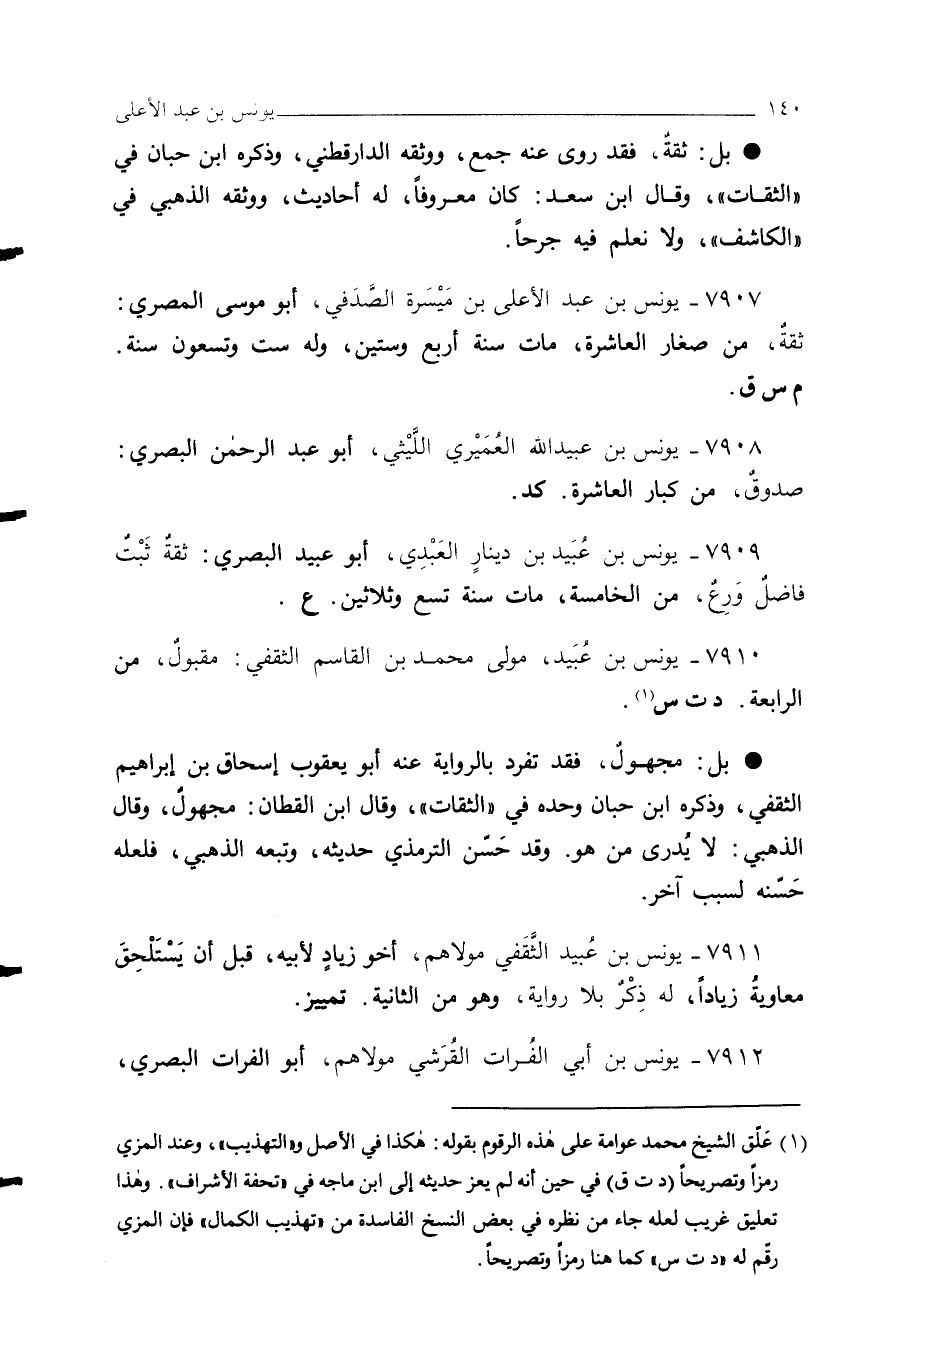 ١٤٠ يونس بن عبد الأعلى
● بل: ثقةٌ، فقد روى عنه جمع، ووثقه الدارقطني، وذكره ابن حبان في
«الثقـات»، وقـال ابن سعـد: كان معـروفاً، له أحاديث، ووثقه الذهبي في
«الكاشف»، ولا نعلم فيه جرحاً.
٧٩٠٧ ـ يونس بن عبد الأعلى بن مَيْسَرة الصَّدَفي، أبو موسى المصري:
ثقةٌ، من صغار العاشرة، مات سنة أربع وستين، وله ست وتسعون سنة.
م س ق.
٧٩٠٨ ـ يونس بن عبيدالله العُمَيْري اللَّيْثي، أبو عبد الرحمٰن البصري:
صدوقٌ، من كبار العاشرة. كد.
٧٩٠٩ ـ يونس بن عُبَيد بن دينارٍ العَبْدِي، أبو عبيد البصري: ثقةٌ ثَبْتٌ
فاضلٌ وَرِعٌ، من الخامسة، مات سنة تسع وثلاثين. ع .
٧٩١٠ ـ يونس بن عُبَيد، مولى محمـد بن القاسم الثقفي: مقبولٌ، من
الرابعة. د ت س(١).
● بل: مجهـولٌ، فقد تفرد بالرواية عنه أبو يعقوب إسحاق بن إبراهيم
الثقفي، وذكره ابن حبان وحده في «الثقات»، وقال ابن القطان: مجهولٌ، وقال
الذهبي: لا يُدرى من هو. وقد حَسّن الترمذي حديثه، وتبعه الذهبي، فلعله
حَسّنه لسبب آخر.
٧٩١١ ـ يونس بن عُبيد الثَّقَفي مولاهم، أخو زيادٍ لأبيه، قبل أن يَسْتَلْحِقَ
معاويةُ زياداً، له ذِكْرٌ بلا رواية، وهو من الثانية. تمييز.
٧٩١٢ ـ يونس بن أبي الفُـرات القُرَشي مولاهم، أبو الفرات البصري،
(١) عَلّق الشيخ محمد عوامة على هٰذه الرقوم بقوله: هٰكذا في الأصل و«التهذيب»، وعند المزي
رمزاً وتصريحاً (د ت ق) في حين أنه لم يعز حديثه إلى ابن ماجه في «تحفة الأشراف». وهٰذا
تعليق غريب لعله جاء من نظره في بعض النسخ الفاسدة من «تهذيب الكمال» فإن المزي
رقّم له «د ت س» كما هنا رمزاً وتصريحاً.